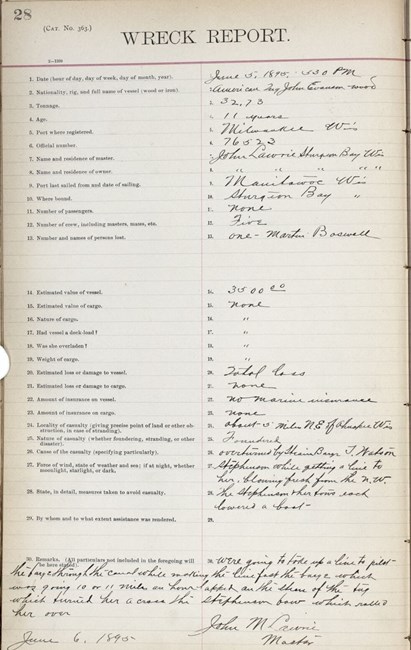 28
(CAT. NO. 363.)
WRECK REPORT.
1. Date (hour of day, day of week, day of month, year). 1. June 5, 1895. 530 PM
2. Nationality, rig, and full name of vessel (wood or iron). 2. American Tug John Evanson - wood
3. Tonnage. 3. 32,73
4. Age. 4. 11 years
5. Port where registered. 5. Milwaukee Wis
6. Official number. 6. 76523
7. Name and residence of master. 7. John Lawrie Sturgeon Bay Wis
8. Name and residence of owner. 8. " " " " " "
9. Port last sailed from and date of sailing. 9. Manitowoc Wis
10. Where bound. 10. Sturgeon Bay "
11. Number of passengers. 11. none
12. Number of crew, including masters, mates, etc. 12. Five
13. Number and names of persons lost. 13. one - Martin Boswell
14. Estimated value of vessel. 14. 3500 00
15. Estimated value of cargo. 15. none
16. Nature of cargo. 16. "
17. Had vessel a deck-load? 17. "
18. Was she overladen? 18. "
19. Weight of cargo. 19. "
20. Estimated loss or damage to vessel. 20. Total loss
21. Estimated loss or damage to cargo. 21. none
22. Amount of insurance on vessel. 22. no marine insurance
23. Amount of insurance on cargo. 23. none
24. Locality of casualty (giving precise point of land or other obstruction, in case of stranding). 24. about 5 miles N.E. of Wis
25. Nature of casualty (whether foundering, stranding, or other disaster). 25. Foundered
26. Cause of the casualty (specifying particularly). 26. overturned by Steam Barge I. Watson
27. Force of wind, state of weather and sea; if at night, whether moonlight, starlight, or dark. 27. Stephenson while getting a line to
her, blowing fresh from the N.W.
28. State, in detail, measures taken to avoid casualty. 28. The Stephenson & her tows each
lowered a boat
29. By whom and to what extent assistance was rendered. 29.
30. Remarks. (All particulars not included in the foregoing will be here stated). 30. Were going to take up a line to pilot
the barge through the canal while making the line fast the barge which
was going 10 or 11 miles an hour on the of the tug
which turned her across the Stephenson bow which rolled
her over
John M Lawrie
June 6, 1895
Master